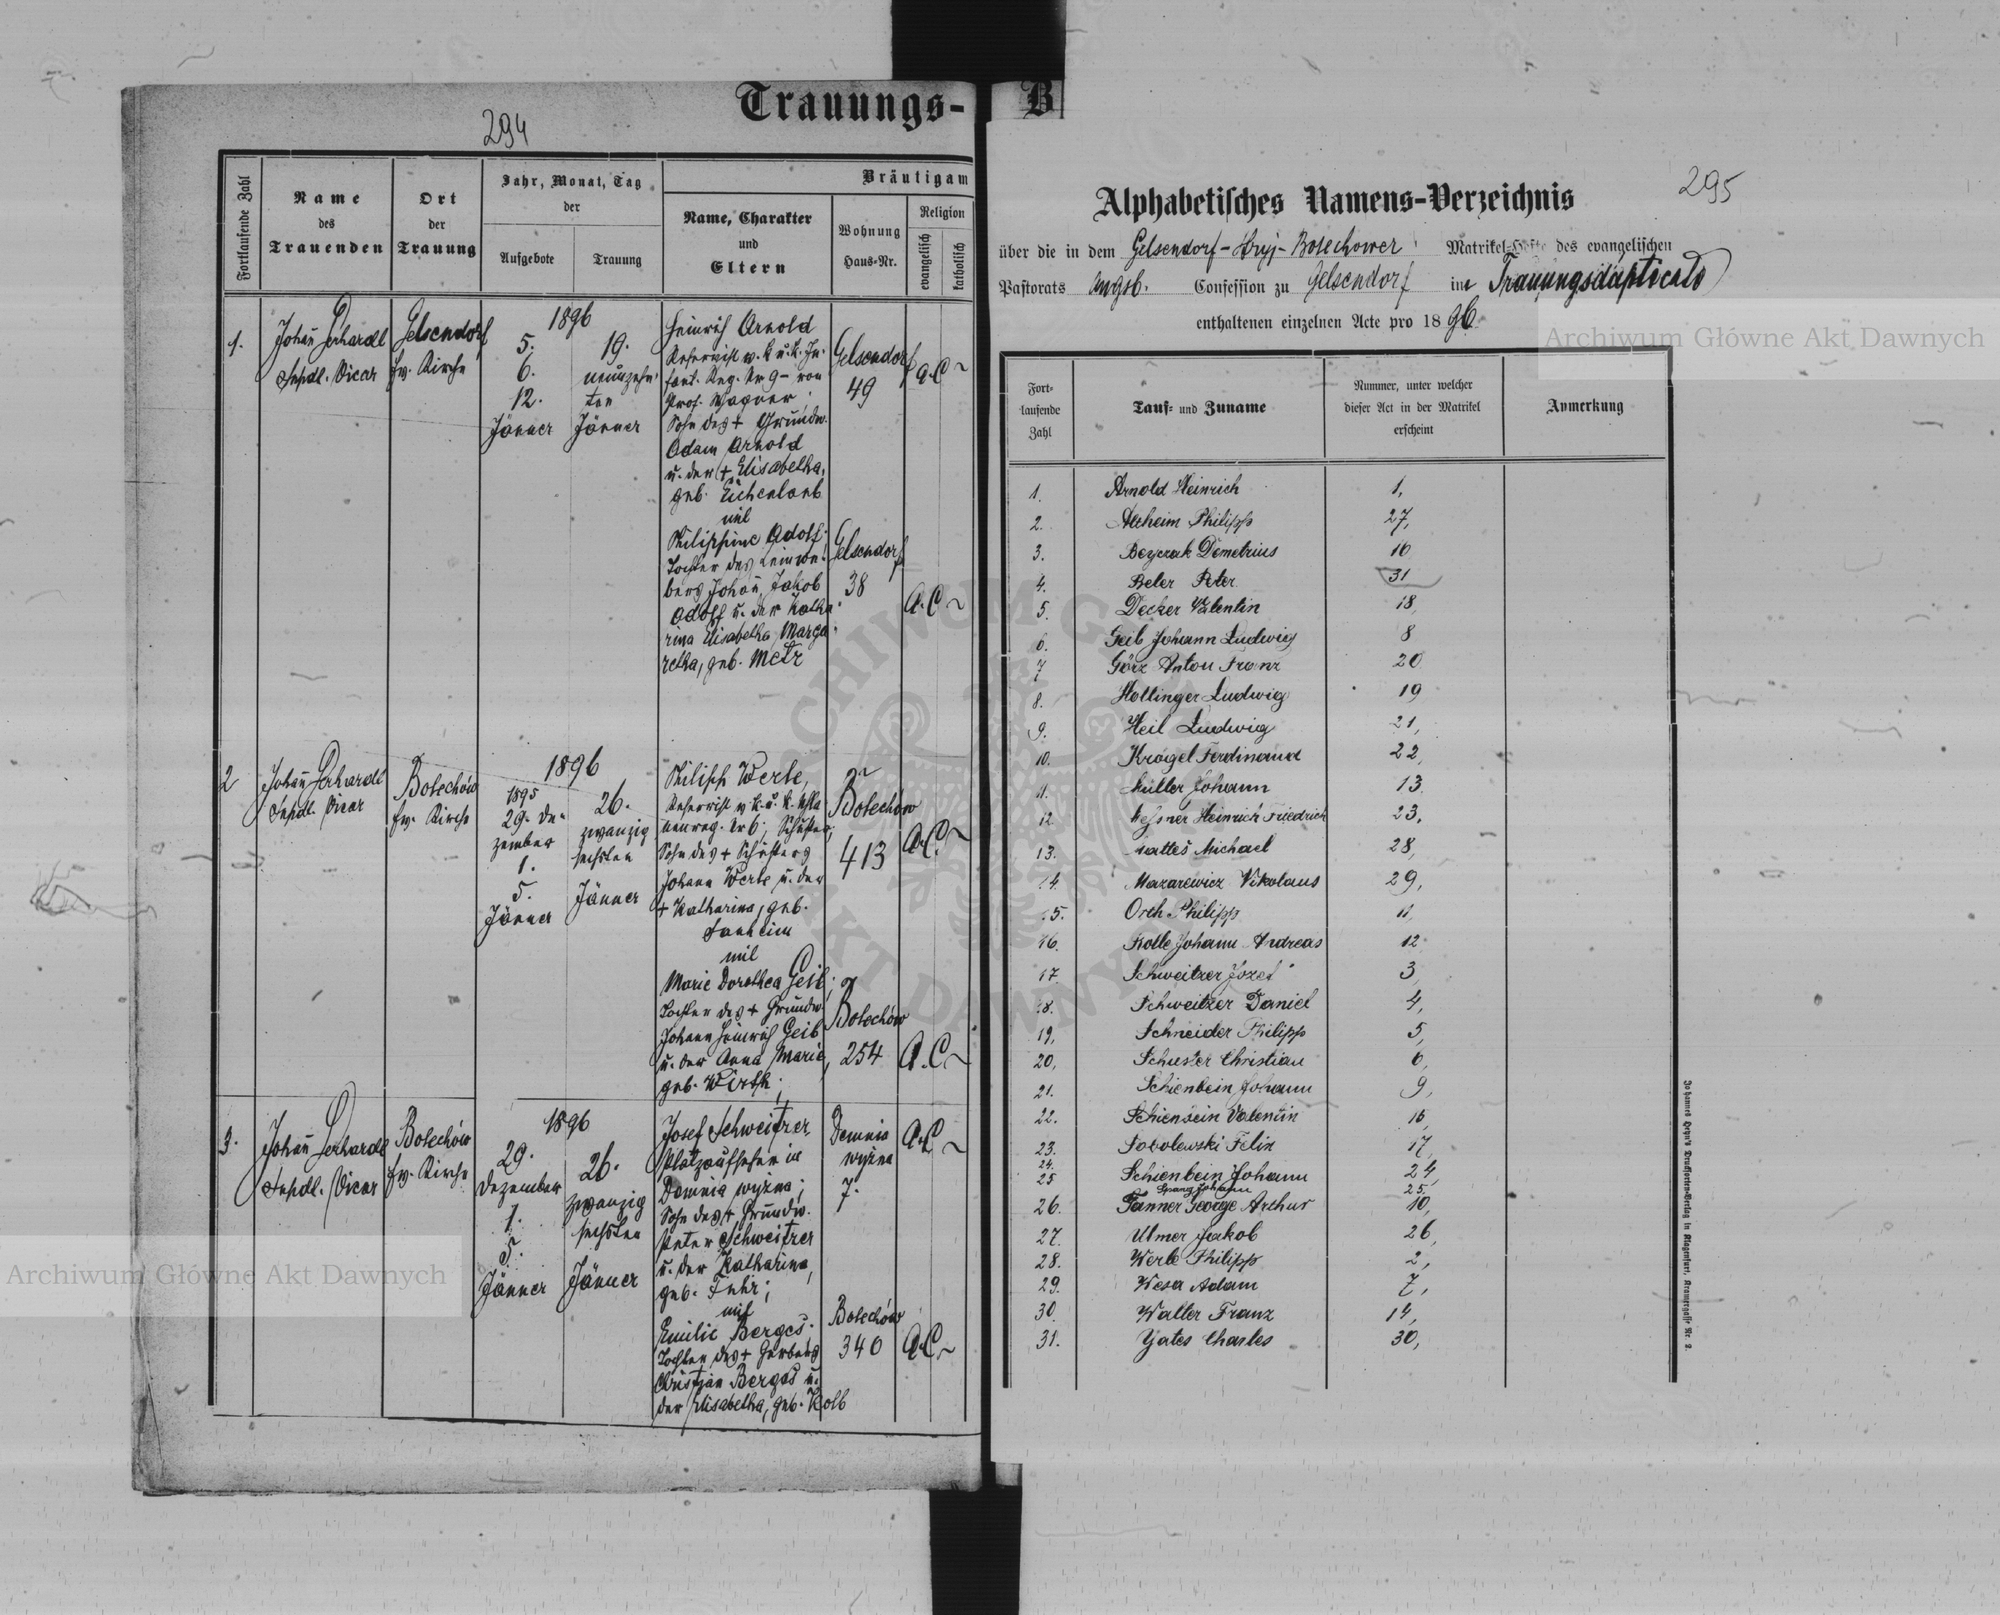 Trauungs-
294
Fortlaufende Zahl
Name
des
Trauenden
Ort
der
Trauung
Jahr, Monat, Tag
der
Aufgebote
Trauung
Bräutigam
Name, Charakter
und
Eltern
Wohnung
Haus-Nr.
Religion
evangelisch
katholisch
1.
Gelsendorf
ev. Kirche
1896
5.
6.
12.
Jänner
19.
neunzehn-
ten
Jänner
Heinrich Arnold
Sohn des + Grundw.
Adam Arnold
u. der + Elisabetha,
geb. Eichenlaub
mit
Philippine Adolf
Tochter des
Johan Jakob
Adolf u. der Katha-
rina Elisabetha Marga-
retha, geb. Metz
Gelsendorf
49
A.C.
Gelsendorf
38
A.C.
2
Bolechów
ev. Kirche
1896
1895
29. De-
zember
1.
5.
Jänner
26.
zwanzig
sechsten
Jänner
Philipp Werle,
Sohn des + Schusters
Johann Werle u. der
+ Katharina, geb.
mit
Marie Dorothea Geib;
Tochter des + Grundw.
Johann Heinrich Geib
u. der Anna Marie,
geb. Wirth;
Bolechów
413
A.C.
Bolechów
254
A.C.
3.
Bolechów
ev. Kirche
1896
29.
Dezember
1.
5.
Jänner
26.
zwanzig
sechsten
Jänner
Josef Schweitzer
Platzaufseher in
Demnia wyżna;
Sohn des + Grundw.
Peter Schweitzer
u. der Katharina,
geb. Fuhr;
mit
Emilie Berges;
Tochter des + Gerbers
Christian Berges u.
der Elisabetha, geb. Kolb
Demnia
wyżna
7.
A.C.
Bolechów
340
A.C.
B
295
Alphabetisches Namens-Verzeichnis
über die in dem Gelsendorf-Stryj-Bolechower Matrikel-Hefte des evangelischen
Pastorats Augsb. Confession zu Gelsendorf im Trauungsduplicate
enthaltenen einzelnen Acte pro 1896
Fort-
laufende
Zahl
Tauf- und Zuname
Nummer, unter welcher
dieser Act in der Matrikel
erscheint
Anmerkung
1. Arnold Heinrich 1,
2. Alcheim Philipp 27,
3. Beyczak Demetrius 16
4. Beler Peter 31
5. Decker Valentin 18,
6. Geib Johann Ludwig 8
7 Görz Anton Franz 20
8. Hollinger Ludwig 19
9. Heil Ludwig 21,
10. Krögel Ferdinand 22,
11. Müller Johann 13.
12. Messner Heinrich Friedrich 23.
13. Mattes Michael 28,
14. Mazarewicz Nikolaus 29,
15. Orth Philipp 11,
16. Rolle Johann Andreas 12
17. Schweitzer Jozef 3,
18. Schweitzer Daniel 4,
19, Schneider Philipp 5,
20, Schuster Christian 6,
21. Schienbein Johann 9,
22. Schienbein Valentin 15,
23. Sokolewski Felix 17,
24. Schienbein Johann 24,
25 Spang Johann 25,
26. Tanner George Arthur 10,
27. Ulmer Jakob 26,
28. Werle Philipp 2,
29. Wesa Adam 7,
30. Walter Franz 14,
31. Yates Charles 30,
Johannes Heyn's Drucksorten-Verlag in Klagenfurt, Kramergasse Nr. 2.
Archiwum Główne Akt Dawnych
Archiwum Główne Akt Dawnych